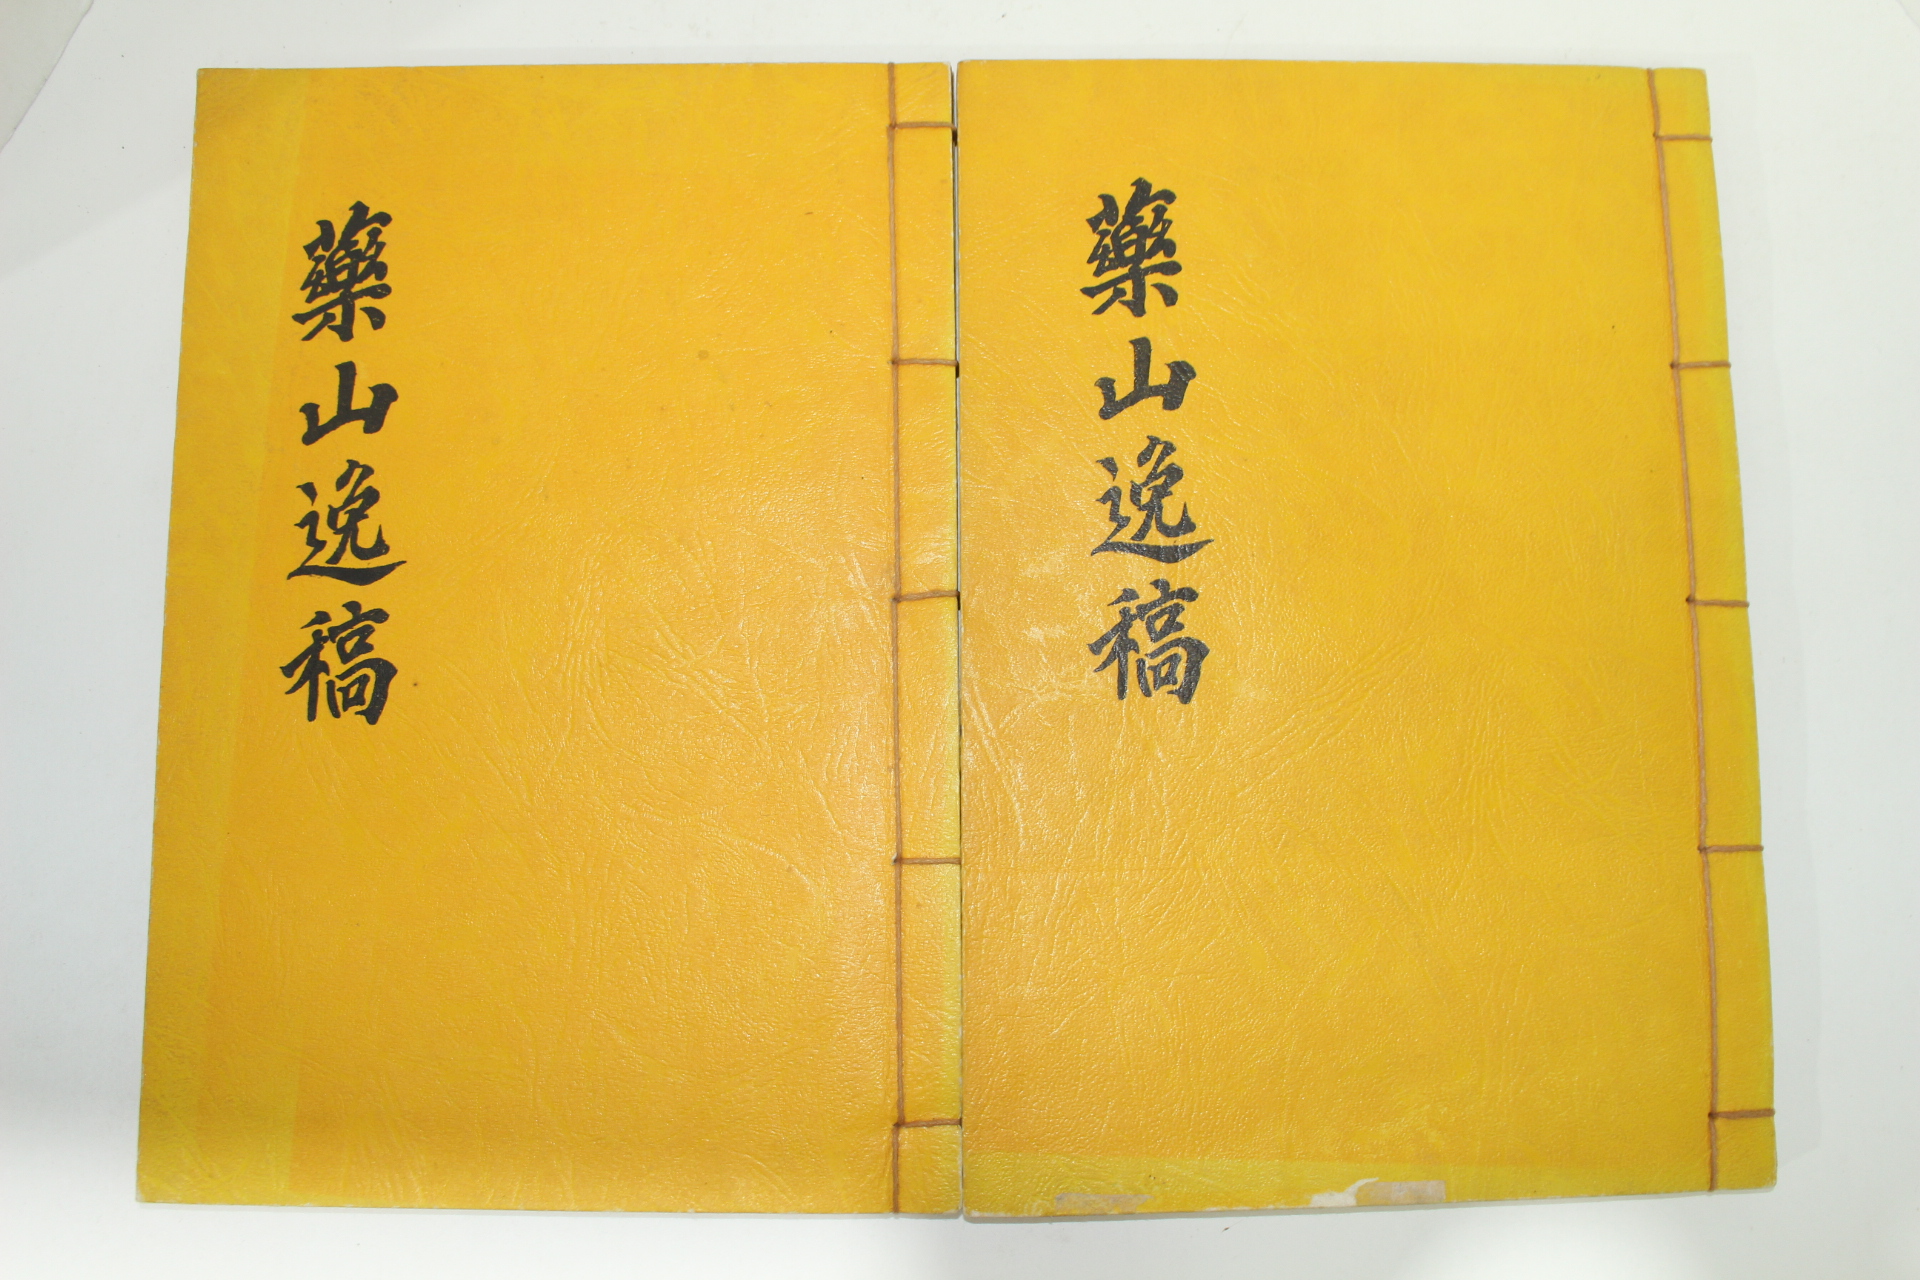 藥山逸稿
藥山逸稿